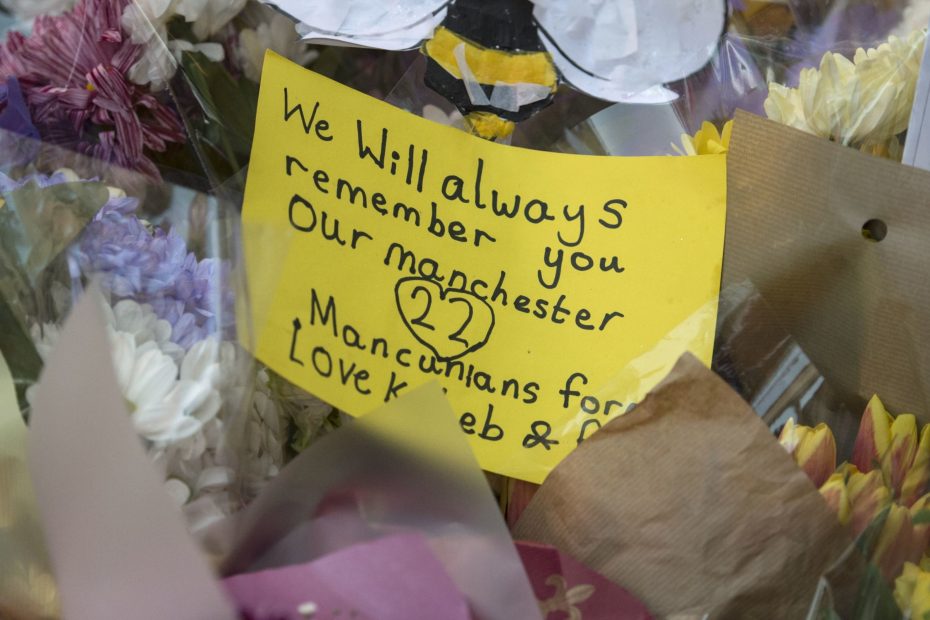 We Will always
remember you
Our manchester
22
Mancunians
Love
&